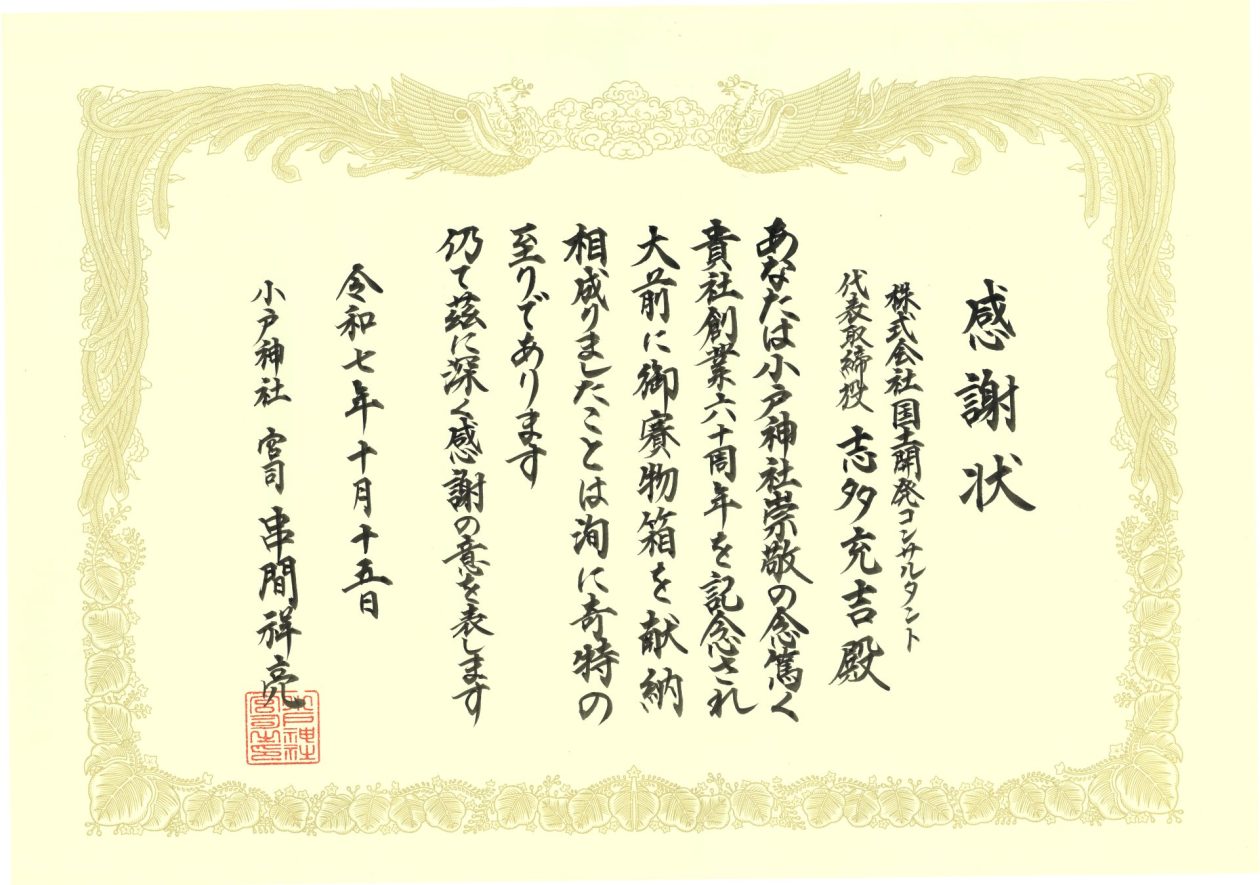 感謝状
株式会社国土開発コンサルタント
代表取締役 志多充吉殿
あなたは小戸神社崇敬の念篤く
貴社創業六十周年を記念され
大前に御賽物箱を献納
相成りましたことは洵に奇特の
至りであります
仍て茲に深く感謝の意を表します
令和七年十月十五日
小戸神社 宮司 串間祥亮
小戸神社
宮司之印